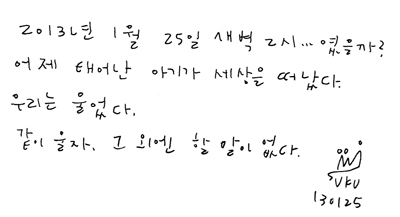 2013년 1월 25일 새벽 2시... 였을까?
어제 태어난 아기가 세상을 떠났다.
우리는 울었다.
같이 울자. 그 외엔 할 말이 없다.
130125